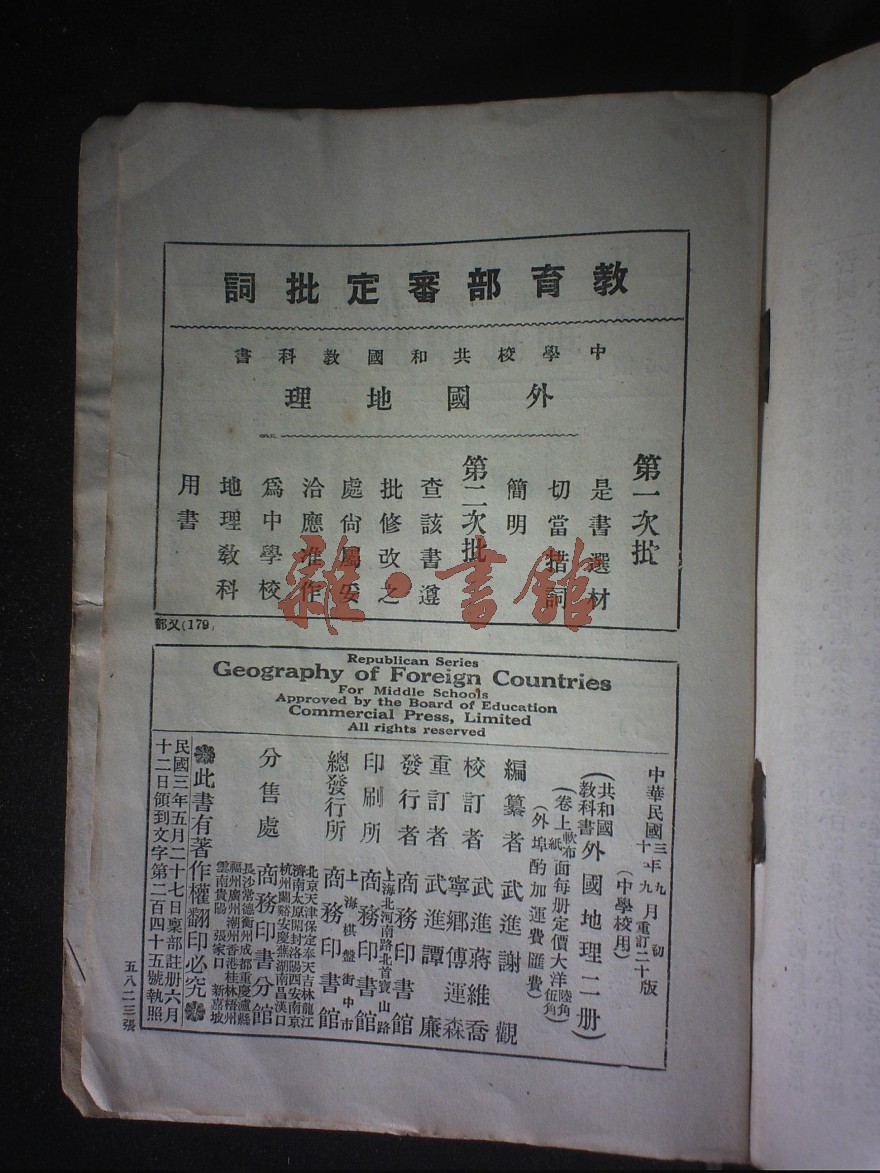 教育部審定批詞
中學校共和國教科書
外國地理
第一次批
是書選材
切當措詞
簡明
第二次批
查該書遵
批修改之
處尙屬妥
洽應准作
爲中學校
地理敎科
用書
(179)
Republican Series
Geography of Foreign Countries
For Middle Schools
Approved by the Board of Education
Commercial Press, Limited
All rights reserved
中華民國三年九月初版
十年九月重訂二十版
(中學校用)
(共和國教科書外國地理二册)
(卷上軟布紙面每册定價大洋陸角伍角)
(外埠酌加運費匯費)
編纂者 武進謝觀
校訂者 武進蔣維喬
寧鄉傅運森
重訂者 武進譚廉
發行者 商務印書館
上海北河南路北首寶山路
印刷所 商務印書館
上海棋盤街中市
總發行所 商務印書館
北京天津保定奉天吉林龍江
濟南太原開封洛陽西安南京
杭州蘭谿安慶蕪湖南昌漢口
分售處 商務印書分館
長沙常德衡州成都重慶瀘縣
福州廣州潮州香港桂林梧州
雲南貴陽 張家口 新嘉坡
此書有著作權翻印必究
民國三年五月二十七日稟部註册六月
十二日領到文字第二百四十五號執照
五八二三張
雜·書館